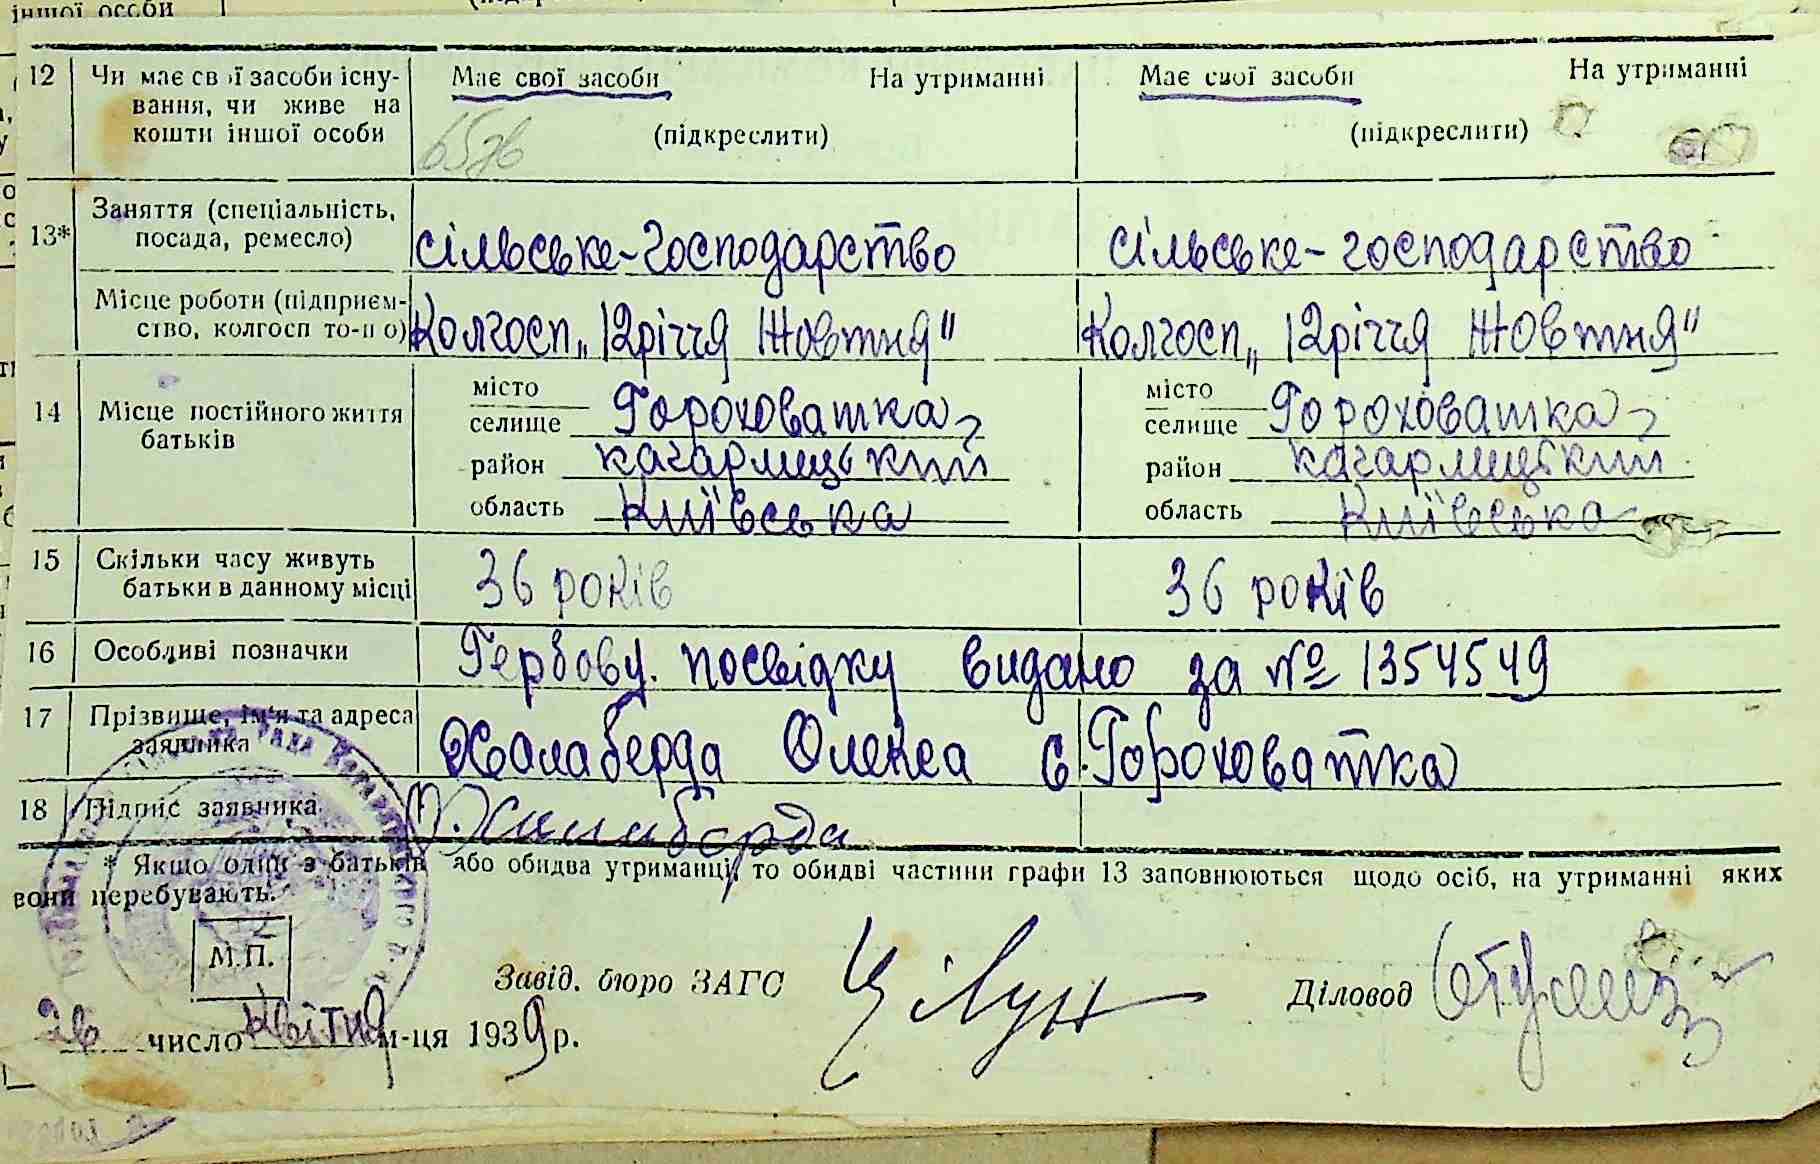 іншої особи
12 Чи має св ї засоби існу- Має свої засоби На утриманні Має свої засоби На утриманні
вання, чи живе на
кошти іншої особи (підкреслити) (підкреслити)
13* Заняття (спеціальність, посада, ремесло) сільське-господарство сільське-господарство
Місце роботи (підприєм-
ство, колгосп то-що) Колгосп „12річчя Жовтня" Колгосп „12річчя Жовтня"
14 Місце постійного життя
батьків
місто
селище Гороховатка, місто
селище Гороховатка,
район кагарлицький район кагарлицький
область Київська область Київська
15 Скільки часу живуть
батьки в данному місці 36 років 36 років
16 Особливі позначки Гербову посвідку видано за № 1354549
17 Прізвище, ім'я та адреса
заявника Халаберда Олекса с. Гороховатка
18 Підпис заявника Халаберда
* Якщо один з батьків або обидва утриманці, то обидві частини графи 13 заповнюються щодо осіб, на утриманні яких
вони перебувають.
М.П.
Завід. бюро ЗАГС Діловод
26 число квітня м-ця 1939 р.